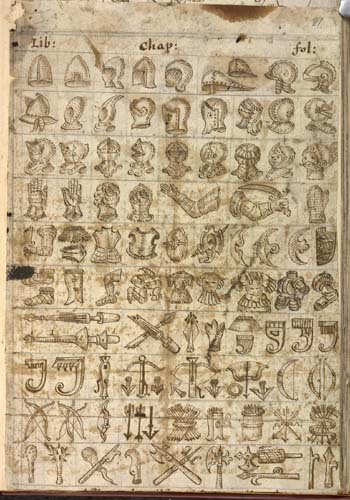 Lib: Chap: fol: